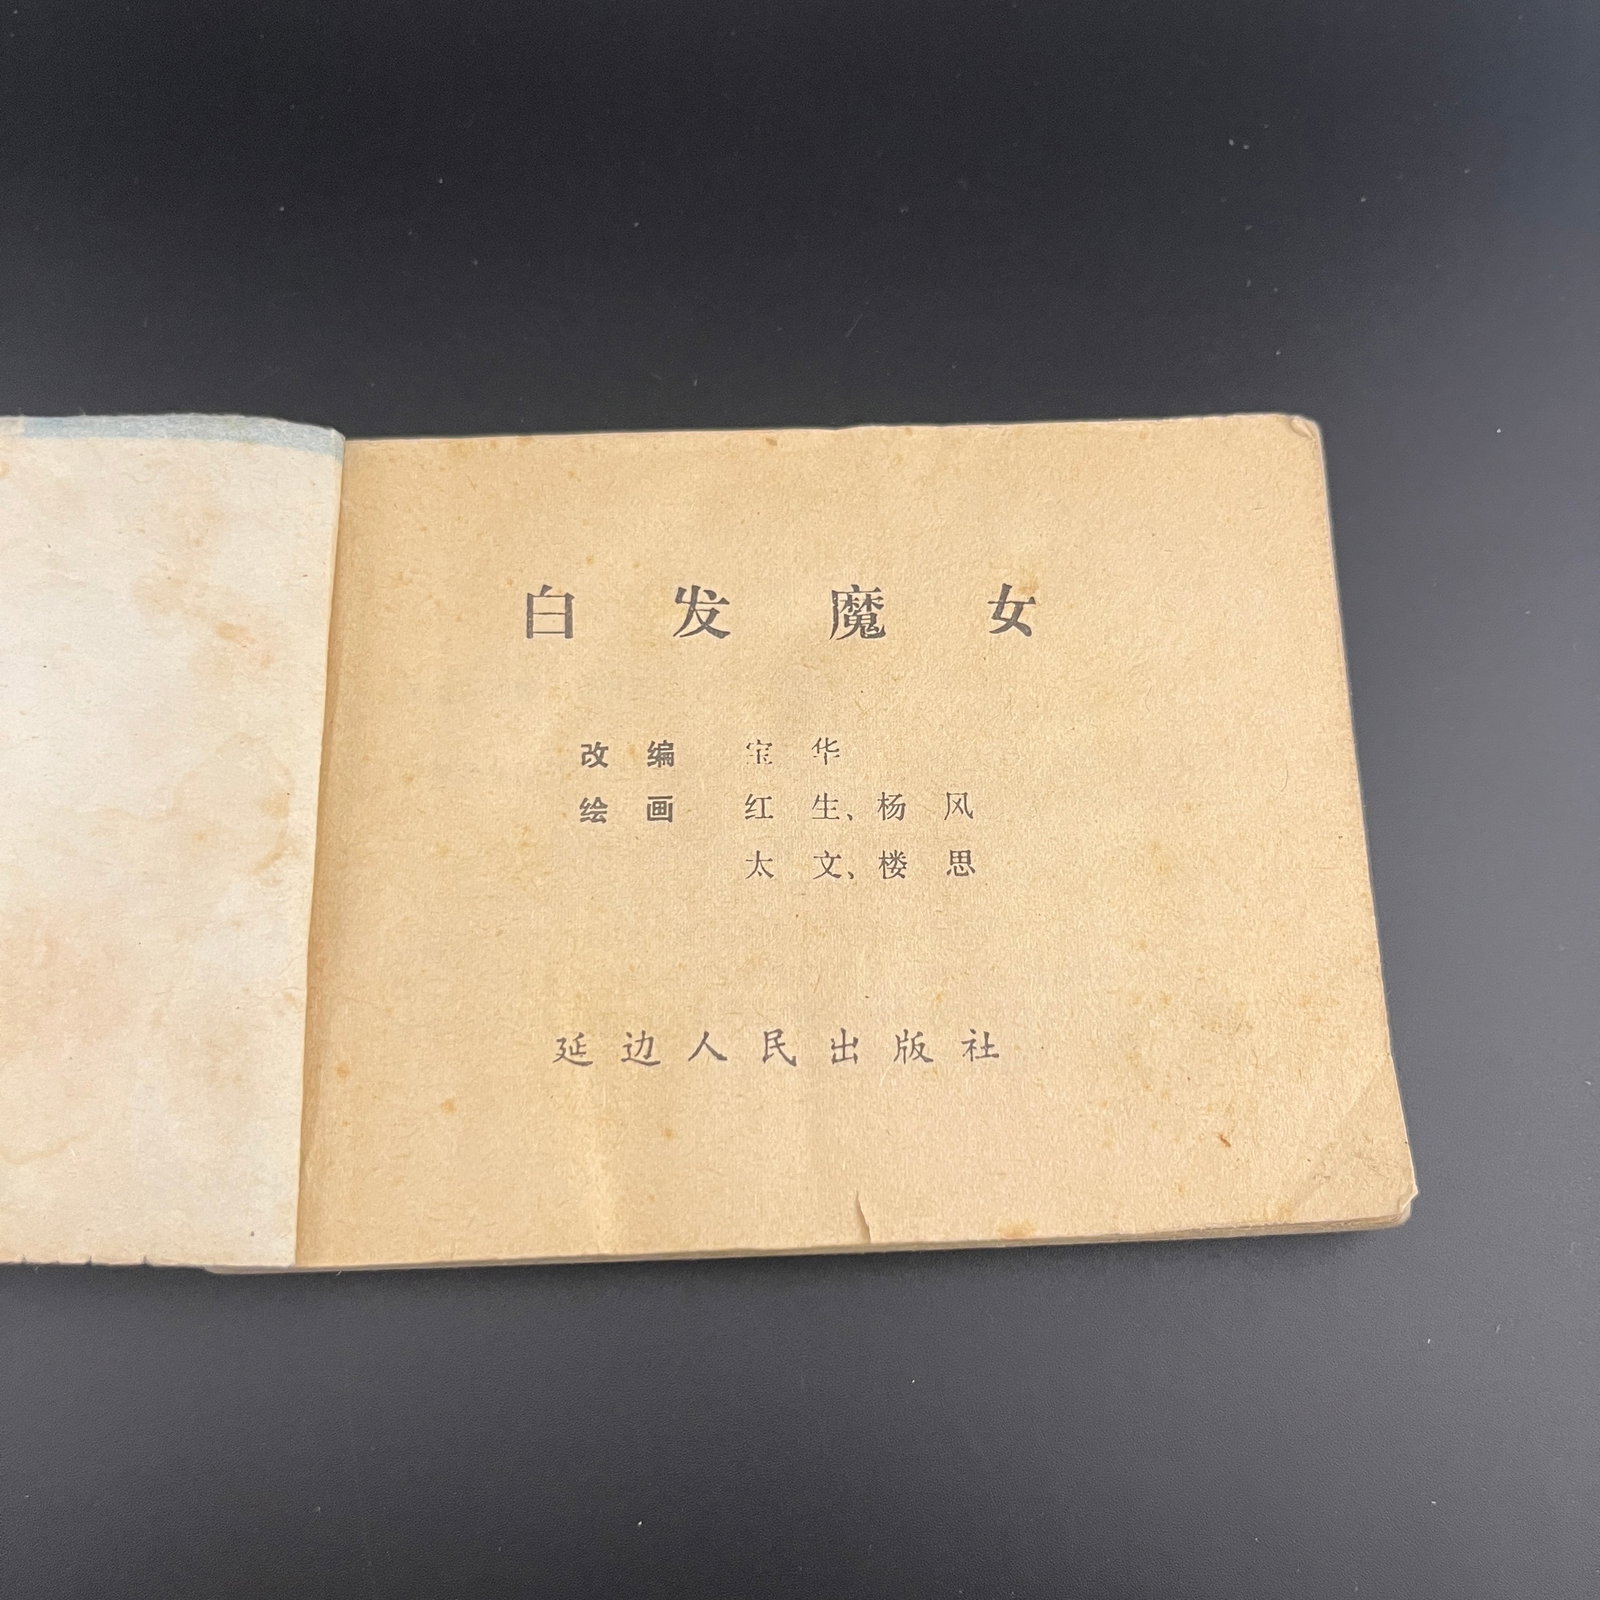 白发魔女
改编 宝华
绘画 红生、杨风
太文、楼思
延边人民出版社